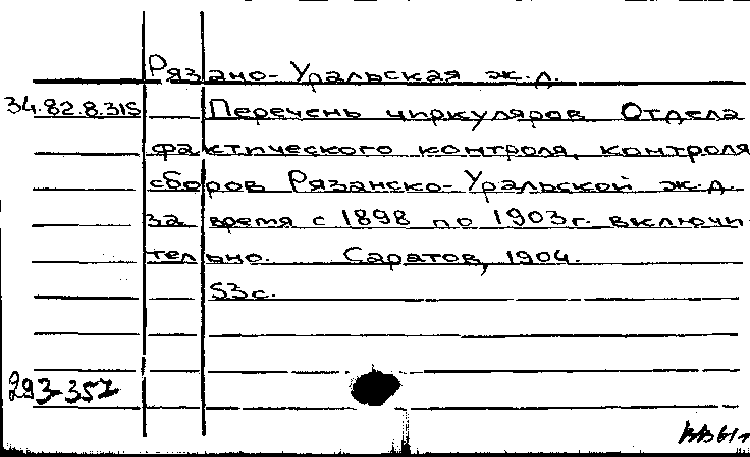 Рязано-Уральская ж.д.
34.82.8.315 Перечень циркуляров Отдела
фактического контроля, контроля
сборов Рязанско-Уральской ж.д.
за время с 1898 по 1903г. включи
тельно. Саратов, 1904.
53с.
293-357